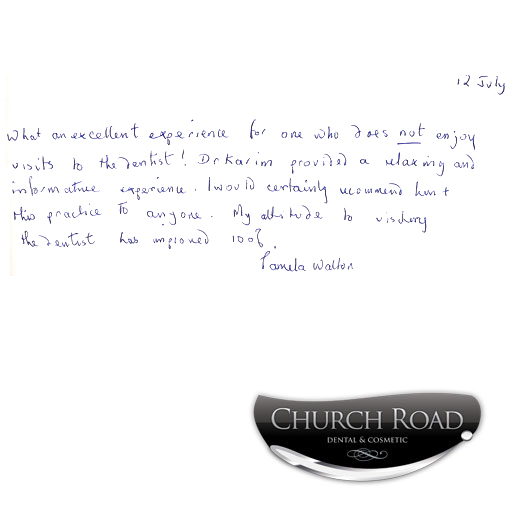 12 July
What an excellent experience for one who does not enjoy
visits to the dentist! Dr Karim provided a relaxing and
informative experience. I would certainly recommend him +
this practice to anyone. My attitude to visiting
the dentist has improved 100%.
Pamela Walton
CHURCH ROAD
DENTAL & COSMETIC